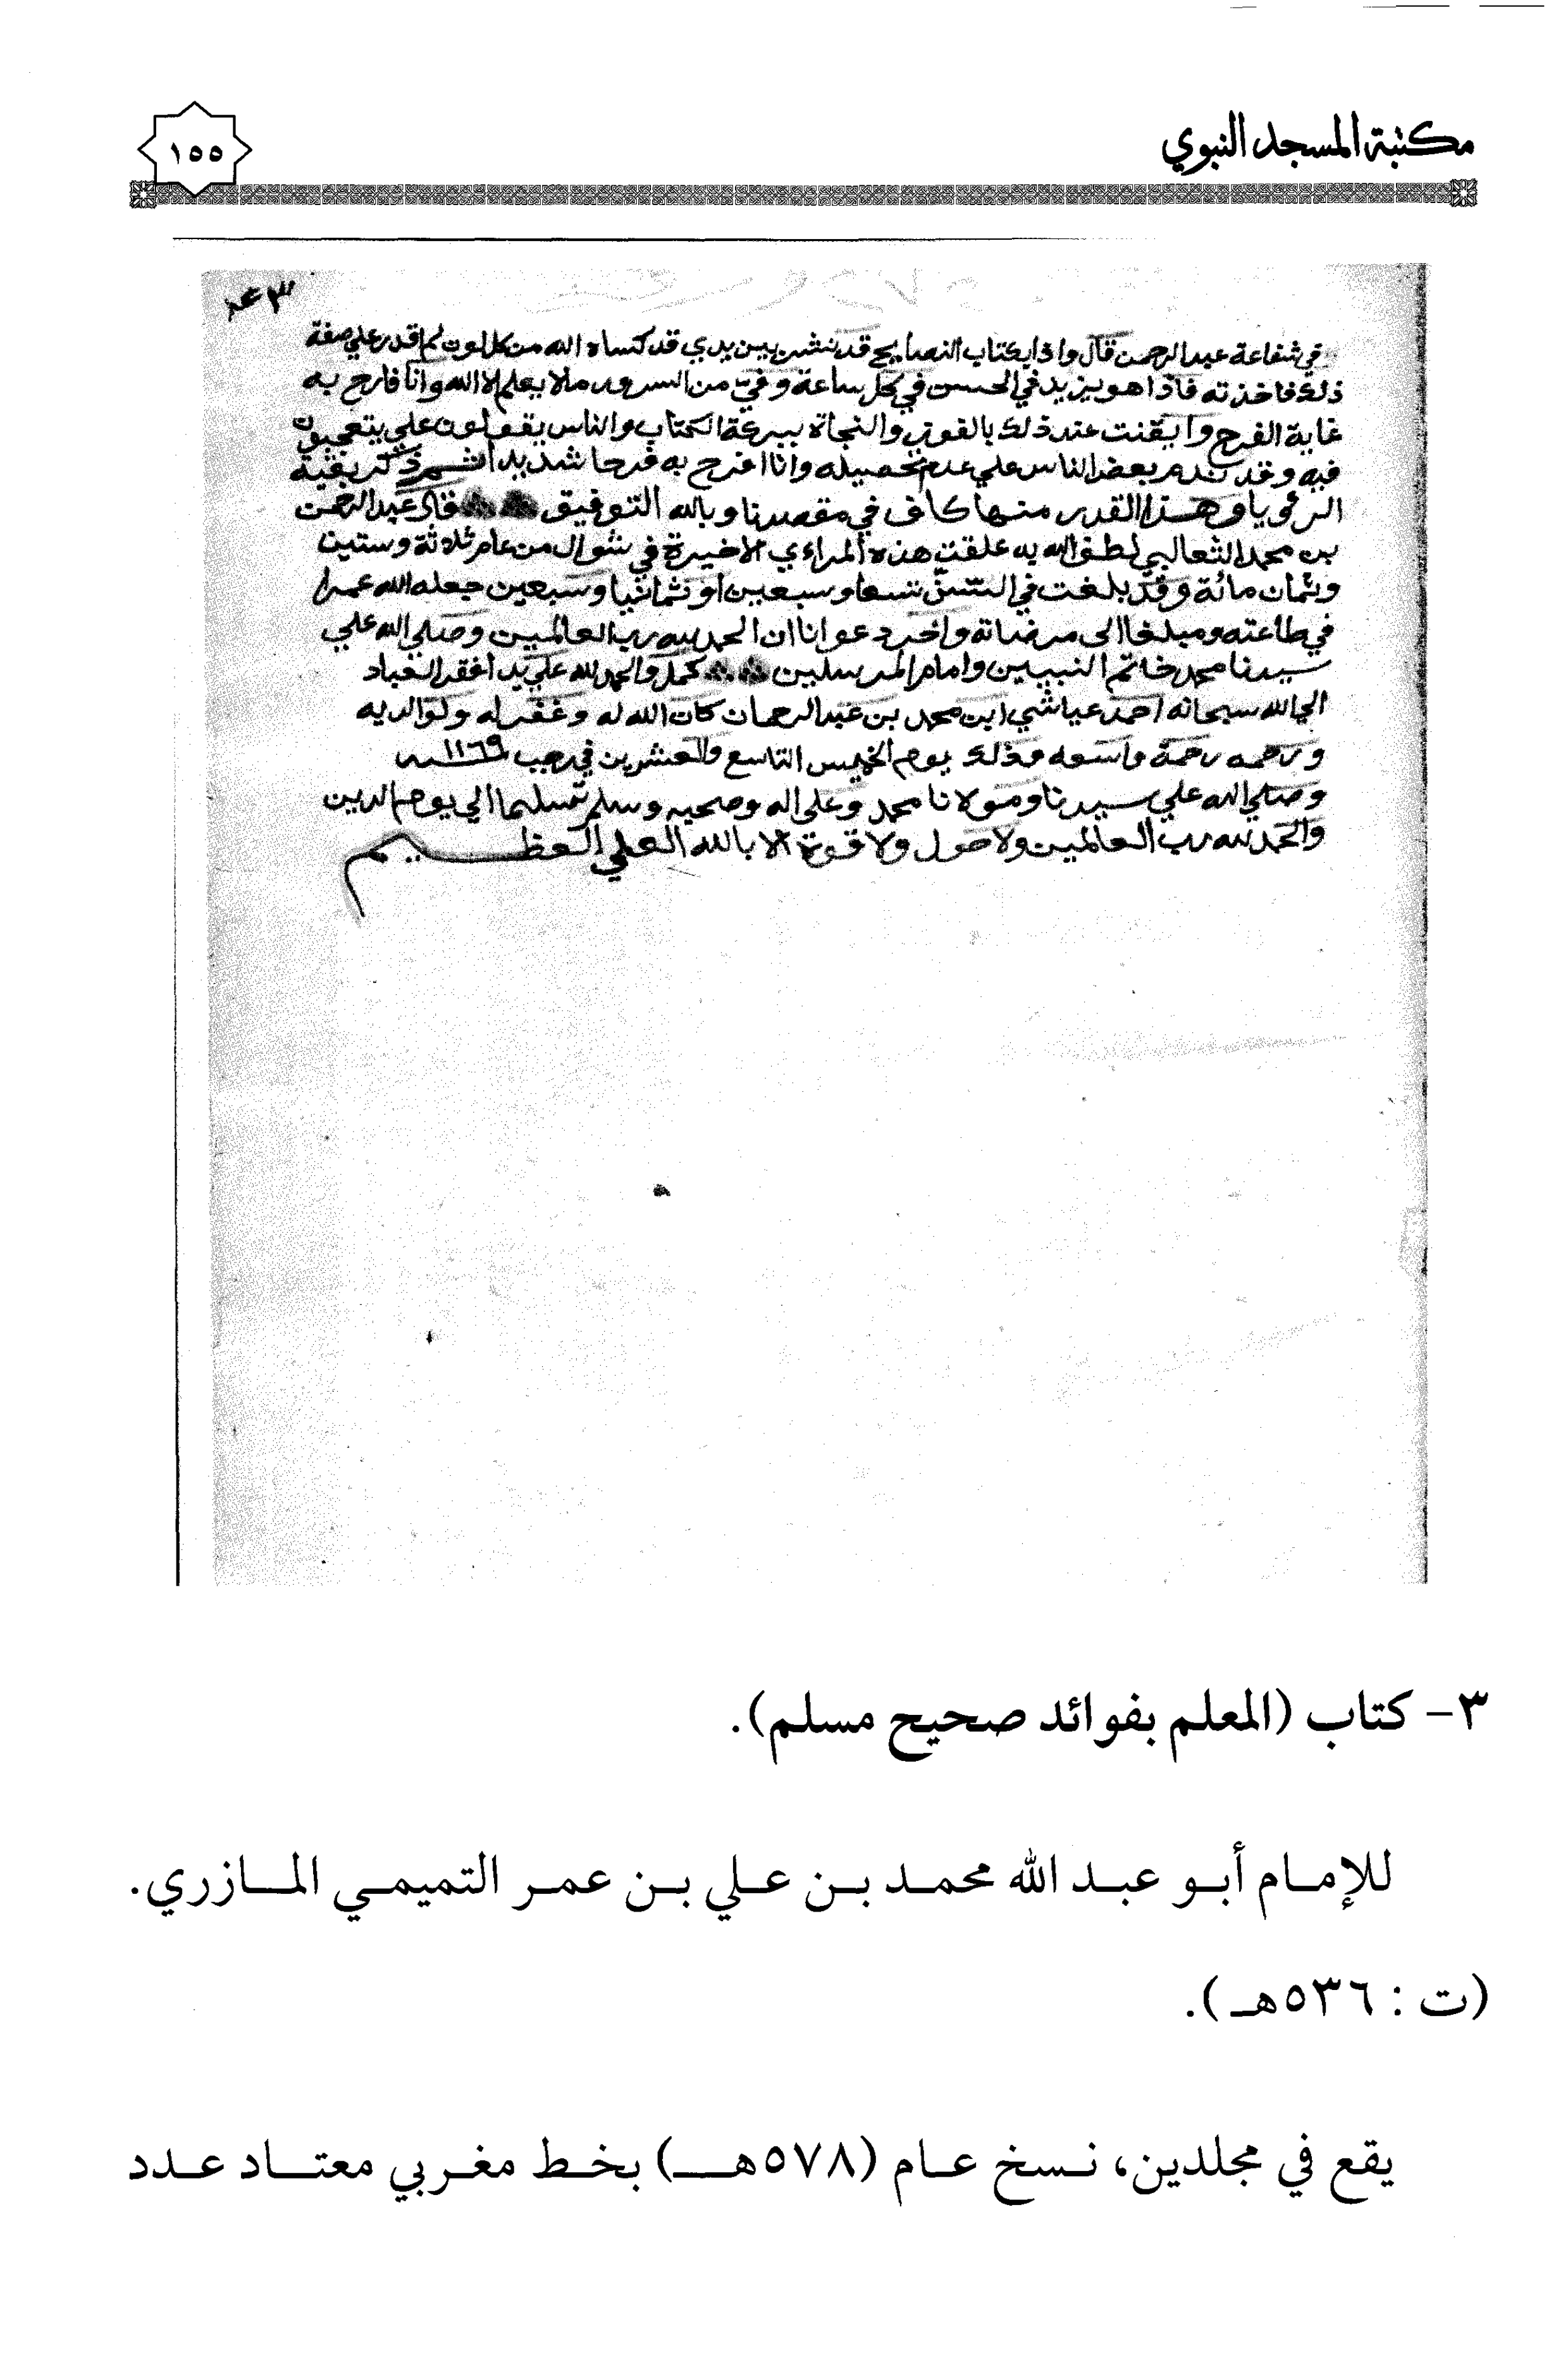 مكتبة المسجد النبوي
١٥٥
في شفاعة عبد الرحمن قال واذا بكتاب النصايح قد نشر بين يدي قد كساه الله من كل لون لم اقدر على صفة
ذلك فاخذته فاذا هو يزيد في الحسن في كل ساعة وفيّ من السرور ما لا يعلم الا الله وانا فارح به
غاية الفرح وايقنت عند ذلك بالفوز والنجاة ببركة الكتاب والناس يقولون علي يتعجبون
فيه وقد تندم بعض الناس علي عدم تحصيله وانا افرح به فرحا شديدا ثم ذكر بقية
الرئويا وهذا القدر منها كاف في مقصدنا وبالله التوفيق قال عبد الرحمن
بن محمد الثعالبي لطف الله به علقت هذه المراءي الاخيرة في شوال من عام ثلاثة وستين
وثمان مائة وقد بلغت في السن تسعا وسبعين او ثمانيا وسبعين جعله الله عمرا
في طاعته ومبلغا الى مرضاته واخر دعوانا ان الحمد لله رب العالمين وصلي الله علي
سيدنا محمد خاتم النبيين وامام المرسلين كمل والحمد لله علي يد افقر العباد
الي الله سبحانه احمد عياشي ابن محمد بن عبد الرحمان كان الله له وغفر له ولوالديه
ورحمه رحمة واسعه وذلك يوم الخميس التاسع والعشرين في رجب ١١٦٩ سنه
وصلي الله علي سيدنا ومولانا محمد وعلى اله وصحبه وسلم تسليما الي يوم الدين
والحمد لله رب العالمين ولا حول ولا قوة الا بالله العلي العظيم
٣- كتاب (المعلم بفوائد صحيح مسلم).
للإمام أبو عبد الله محمد بن علي بن عمر التميمي المازري.
(ت : ٥٣٦هـ).
يقع في مجلدين، نسخ عام (٥٧٨هـ) بخط مغربي معتاد عدد